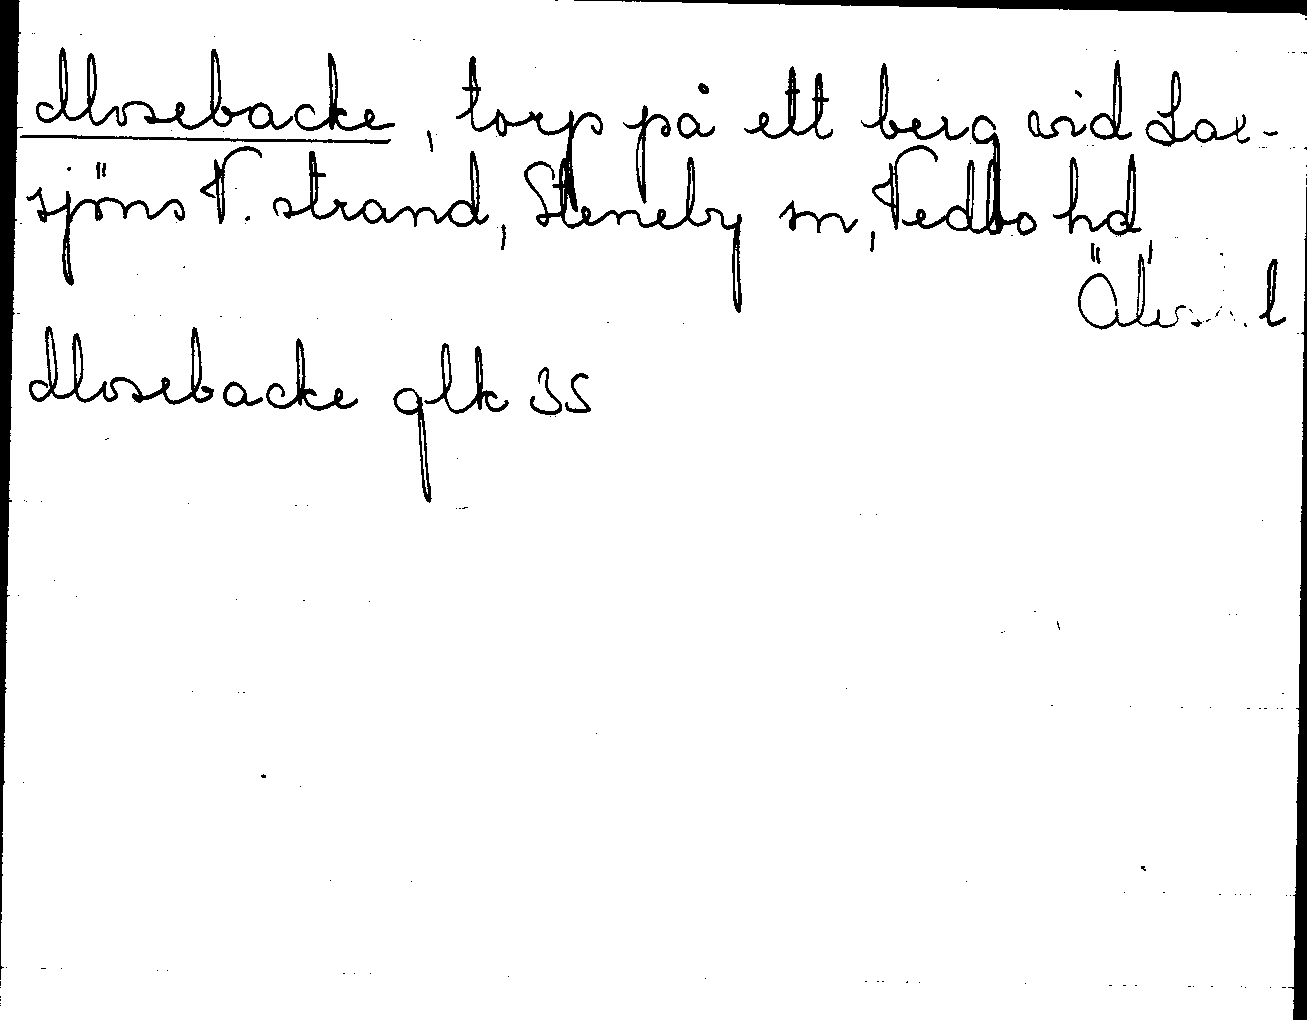 Mosebacke, torp på ett berg vid Lax-
sjöns V. strand, Steneby sn, Vedbo hd
Älvsb. l
Mosebacke glk 35